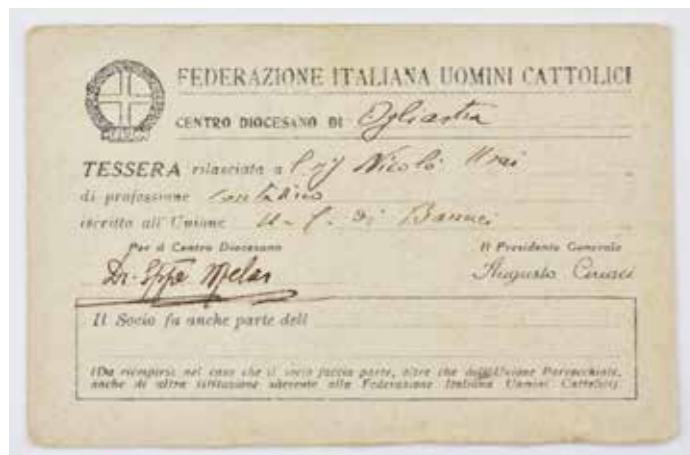 FEDERAZIONE ITALIANA UOMINI CATTOLICI
CENTRO DIOCESANO DI Ogliastra
TESSERA rilasciata a Nicolò
di professione Contadino
iscritto all'Unione U. C. di
Per il Centro Diocesano
Il Presidente Generale
Dr. Melas
Augusto Ciriaci
Il Socio fa anche parte dell
(Da riempirsi nel caso che il socio faccia parte, oltre che dell'Unione Parrocchiale,
anche di altra istituzione aderente alla Federazione Italiana Uomini Cattolici).